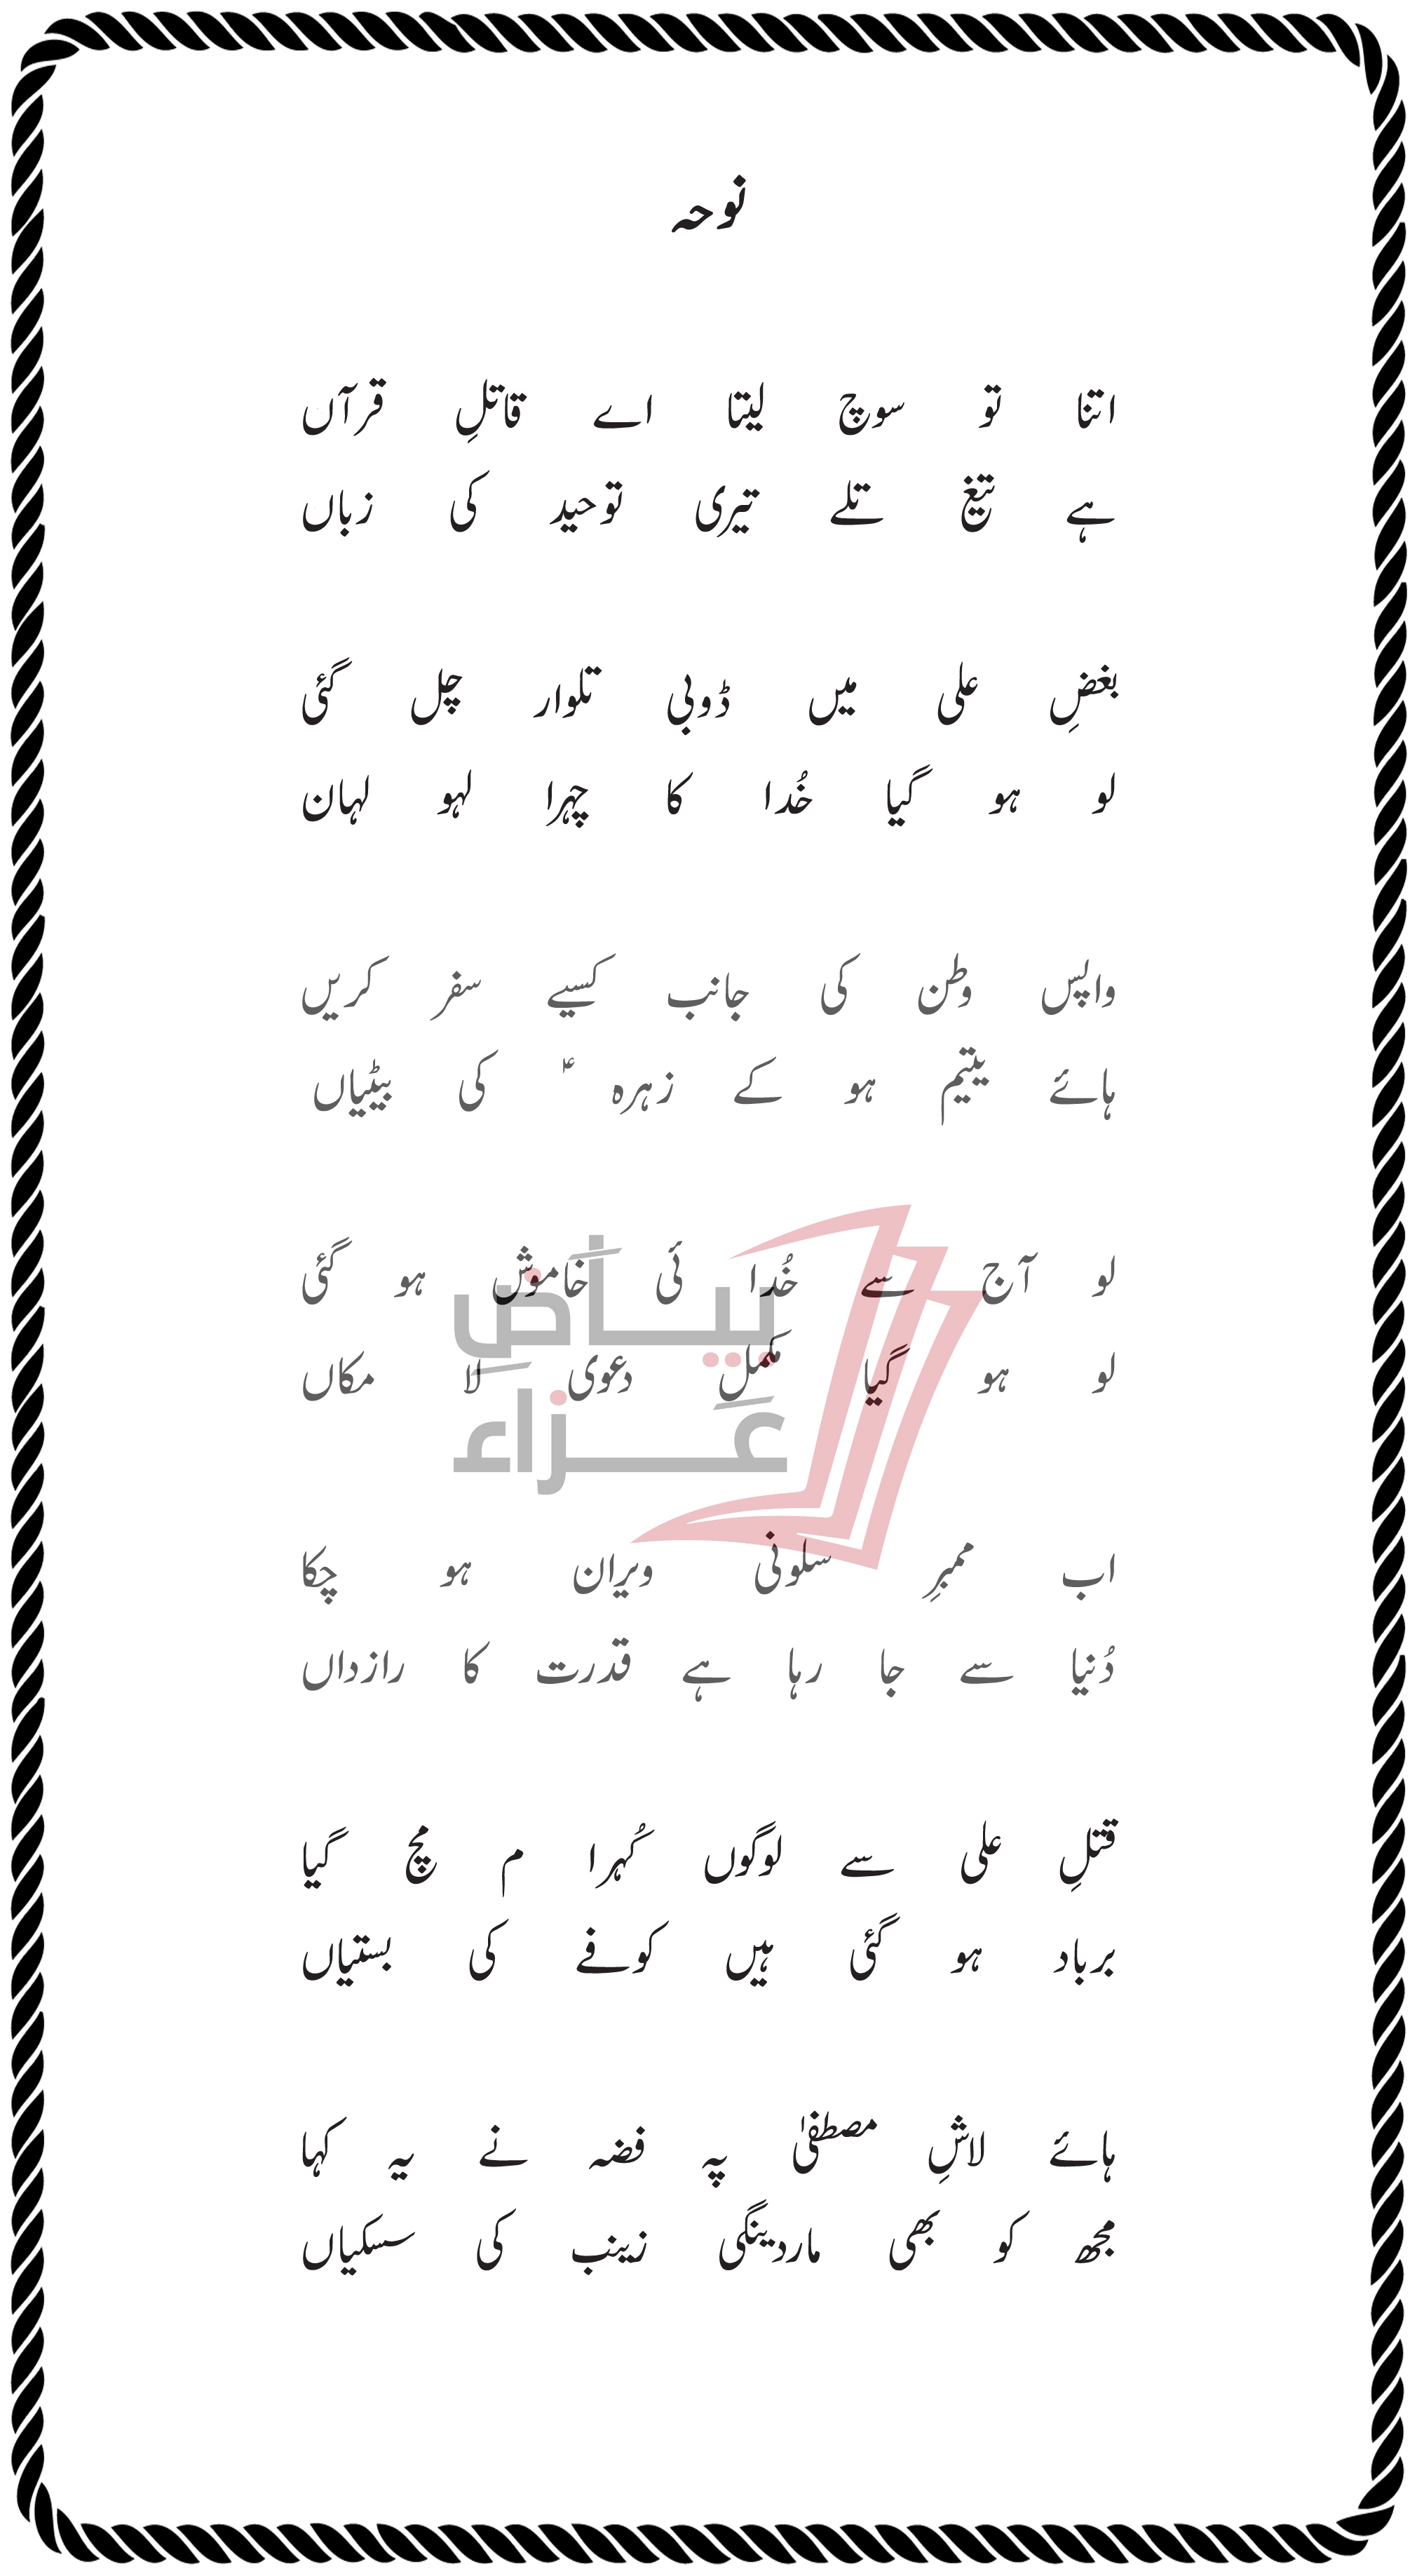 نوحہ
اتنا تو سوچ لیتا اے قاتلِ قرآں
ہے تیغ تلے تیری توحید کی زباں
بغضِ علی میں ڈوبی تلوار چل گئی
لو ہو گیا خُدا کا چہرا لہو لہان
واپس وطن کی جانب کیسے سفر کریں
ہائے یتیم ہو کے زہرہ ؑ کی بیٹیاں
لو آج سے خُدا ئی خاموش ہو گئی
لو ہو گیا مکمل دعوی لا مکاں
بیاضِ
عَزاء
اب ممبرِ سلونی ویران ہو چکا
دُنیا سے جا رہا ہے قدرت کا رازداں
قتلِ علی سے لوگوں کُہرا م مچ گیا
برباد ہو گئی ہیں کوفے کی بستیاں
ہائے لاشِ مصطفیٰ پہ فضہ نے یہ کہا
مجھ کو بھی ماردینگی زینب کی سسکیاں